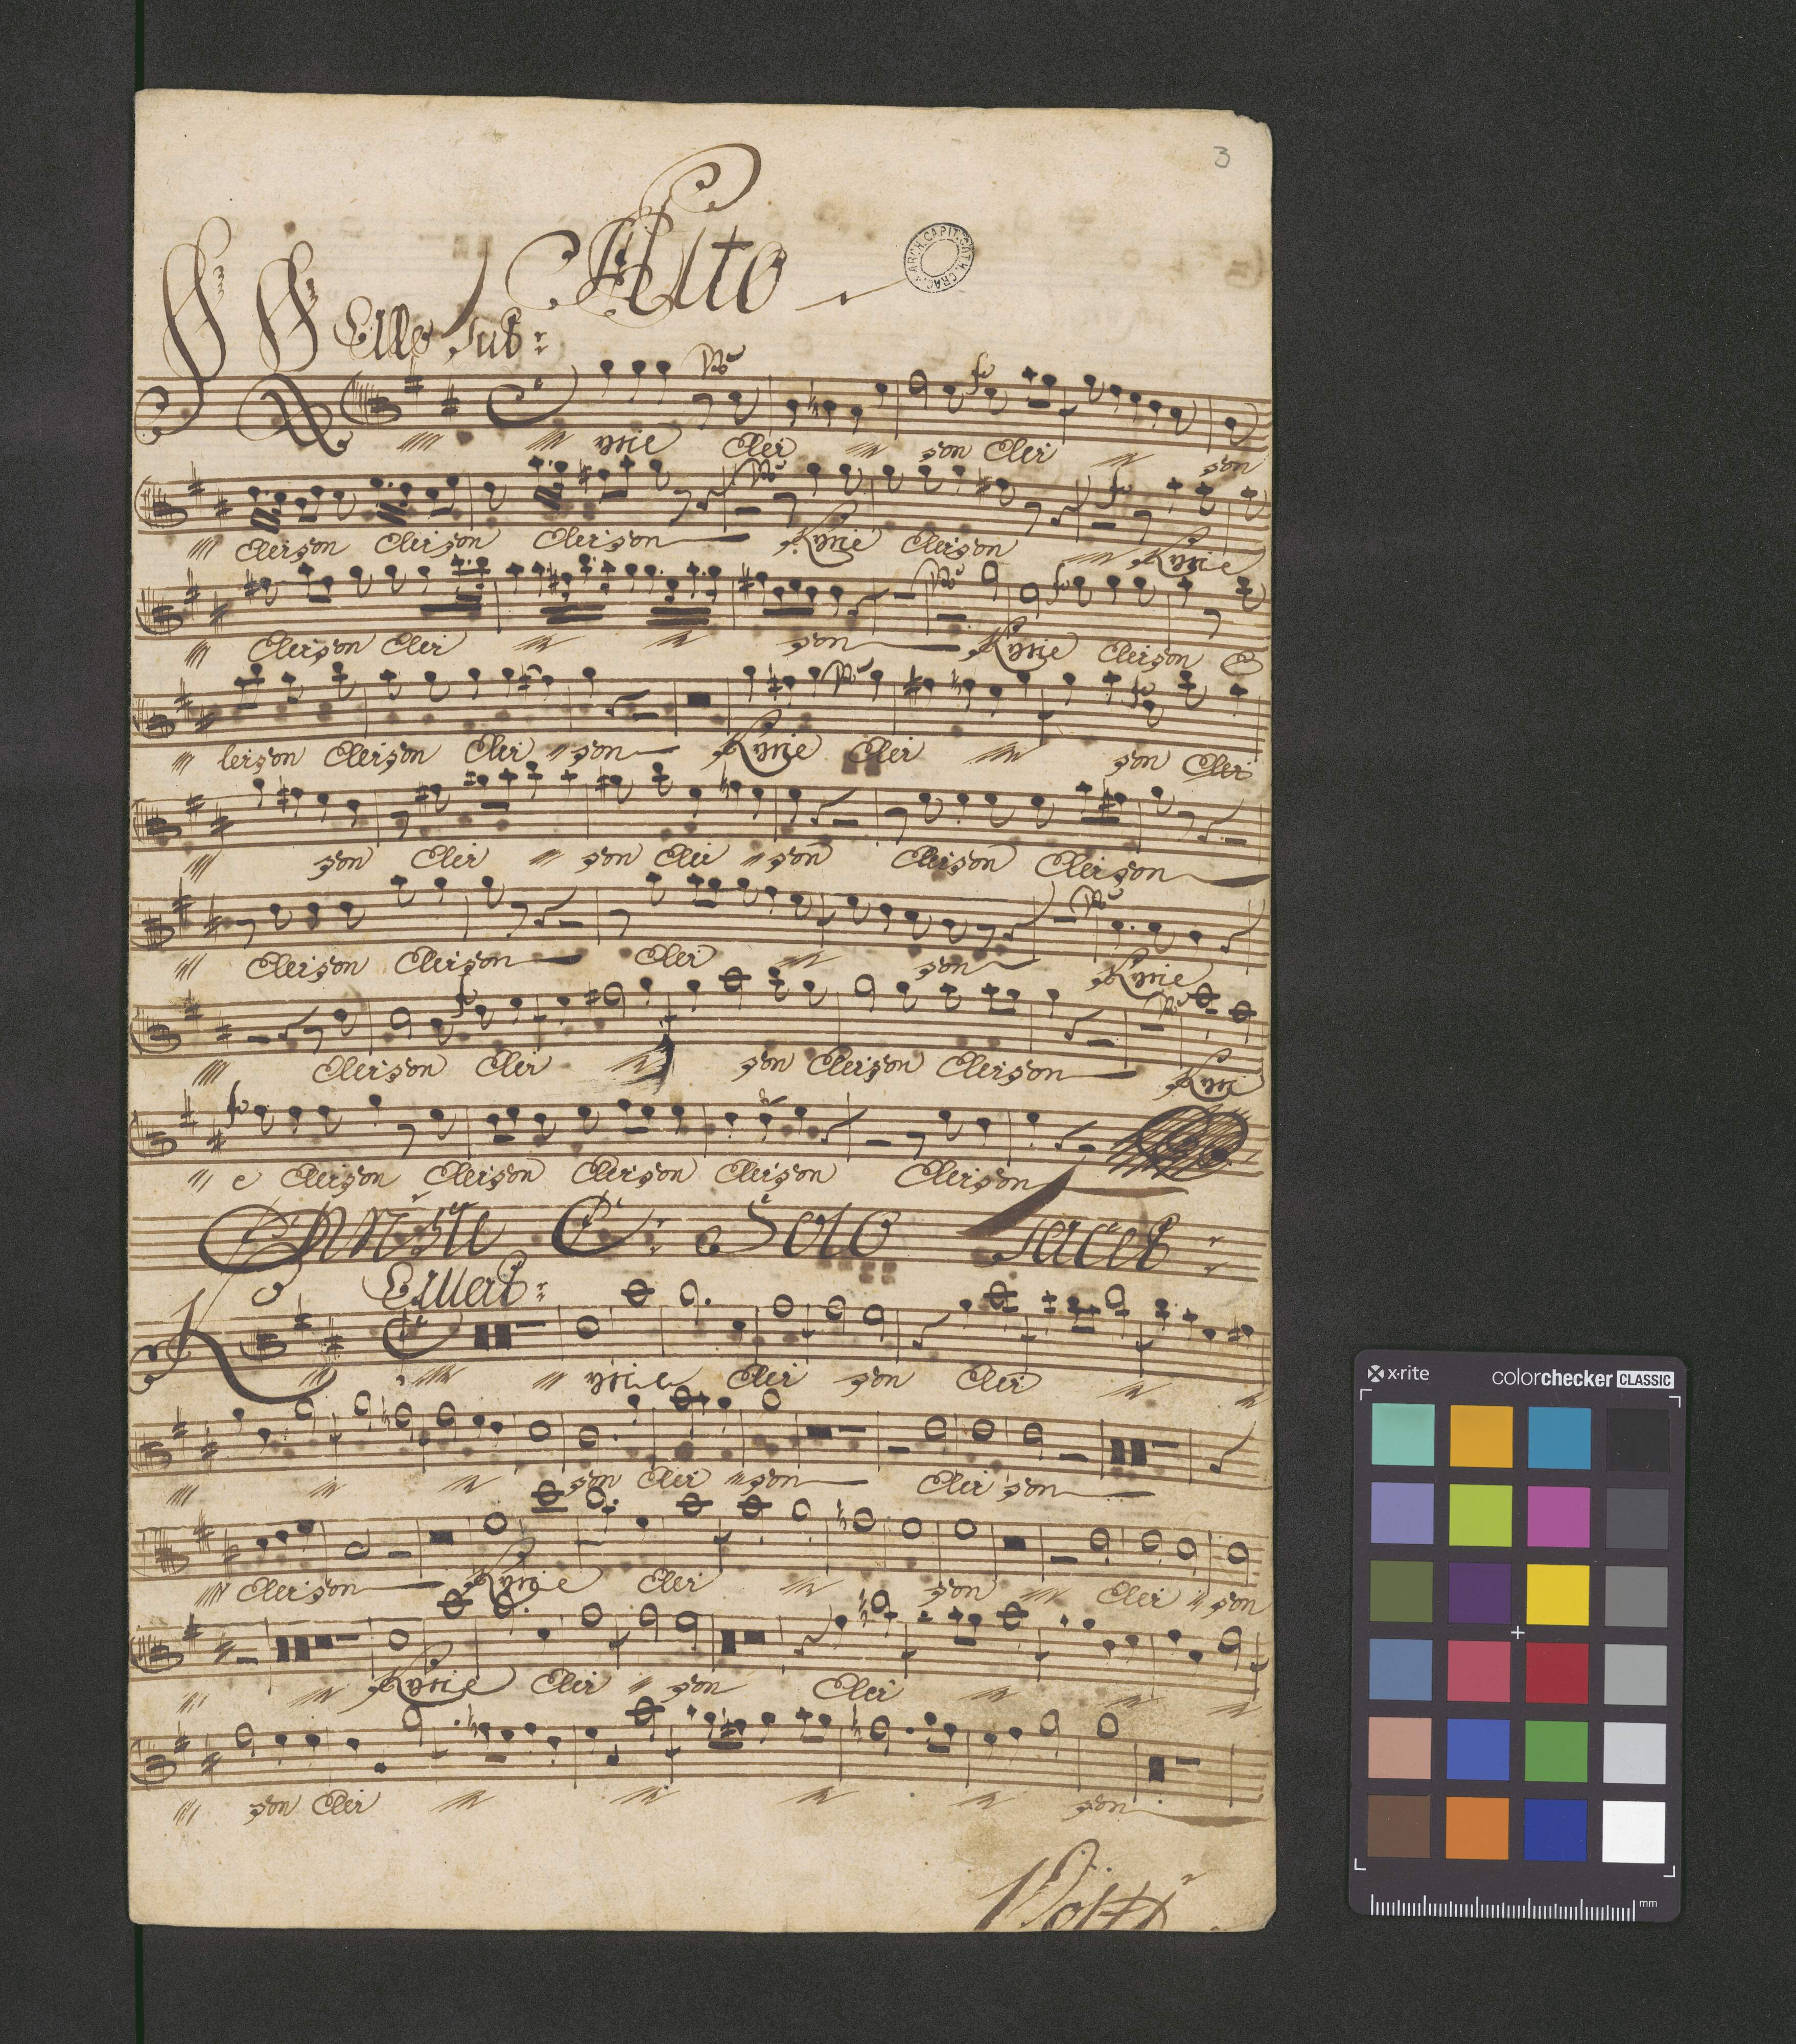 3
Alto
ARCH. CAPIT. CATH. CRAC.
Kyrie Elei son Elei son
Eleison Eleison Eleison Kyrie Eleison Kyrie
Eleison Elei son Kyrie Eleison E
leison Eleison Elei son Kyrie Elei son Elei
son Elei son Elei son Eleison Eleison
Eleison Eleison Elei son Kyrie
Eleison Elei son Eleison Eleison Kyri
e Eleison Eleison Eleison Eleison Eleison
Christe C: Solo Tacet
Kyrie Elei son Elei
son Elei son Elei son
Eleison Kyrie Elei son Elei son
Kyrie Elei son Elei
son Elei son
x·rite colorchecker CLASSIC
mm